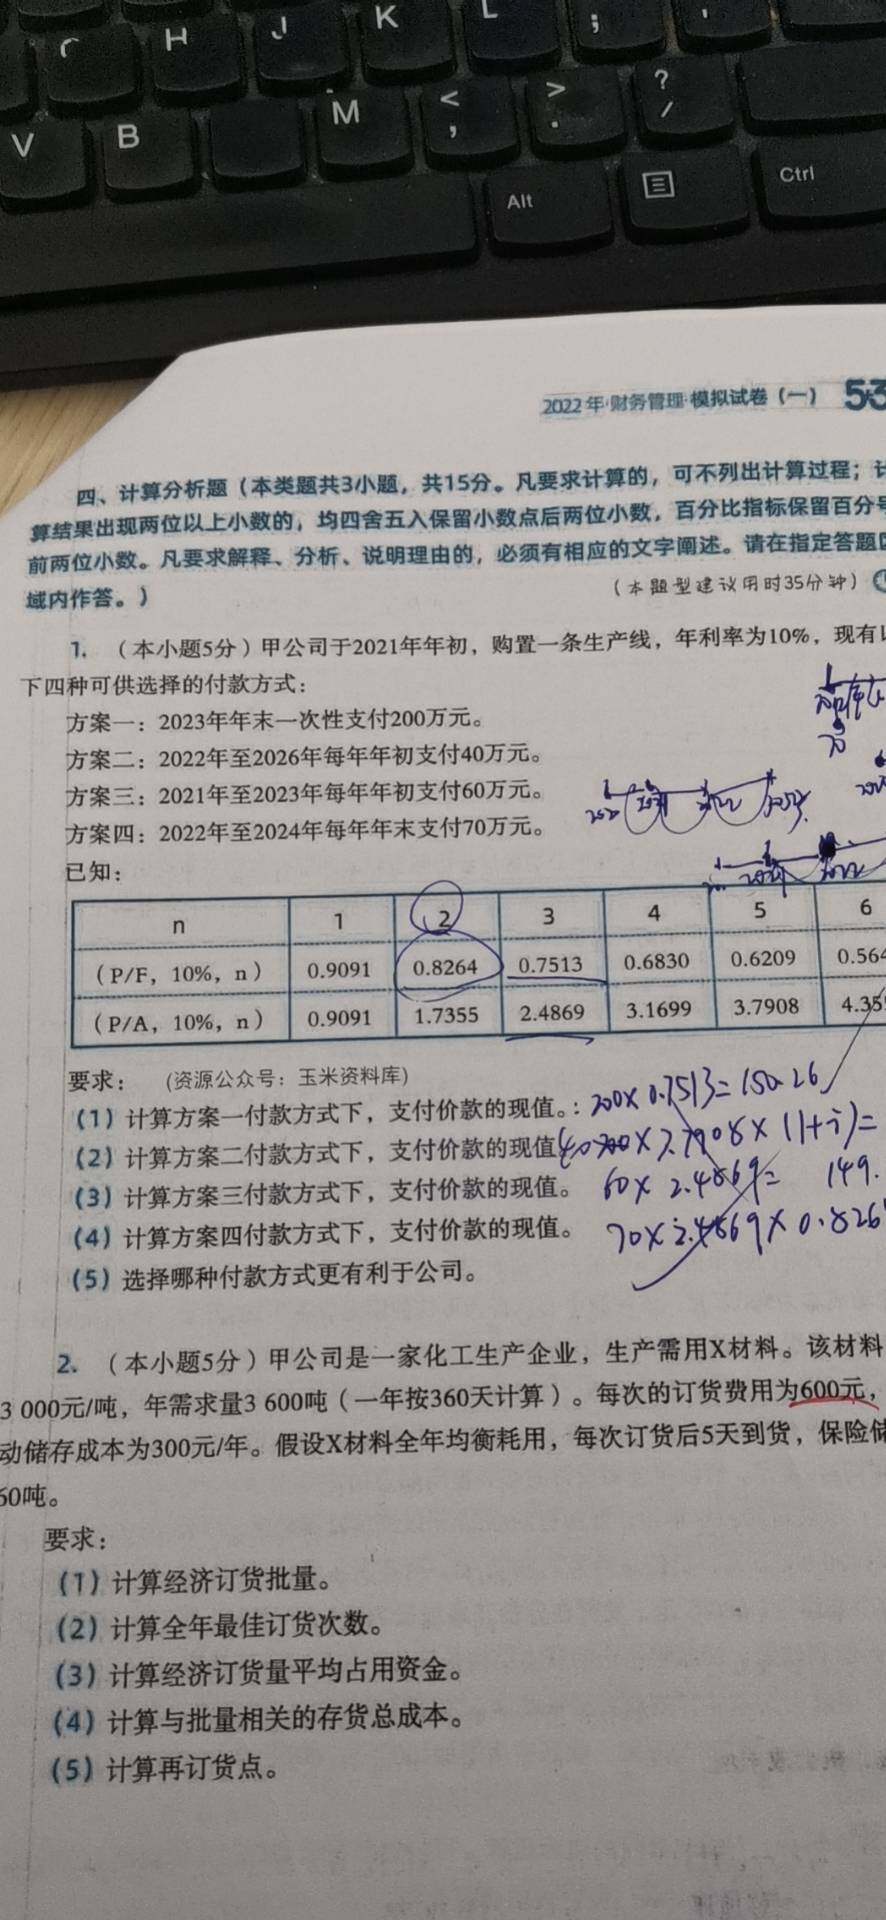 H J K L ;
V B M < , > . ? /
Alt Ctrl
2022年·财务管理·模拟试卷（一） 53
四、计算分析题（本类题共3小题，共15分。凡要求计算的，可不列出计算过程；计
算结果出现两位以上小数的，均四舍五入保留小数点后两位小数，百分比指标保留百分号
前两位小数。凡要求解释、分析、说明理由的，必须有相应的文字阐述。请在指定答题区
域内作答。）
（本题型建议用时35分钟）
1. （本小题5分）甲公司于2021年年初，购置一条生产线，年利率为10%，现有以
下四种可供选择的付款方式：
方案一：2023年年末一次性支付200万元。
方案二：2022年至2026年每年年初支付40万元。
方案三：2021年至2023年每年年初支付60万元。
方案四：2022年至2024年每年年末支付70万元。
已知：
n 1 2 3 4 5 6
（P/F，10%，n） 0.9091 0.8264 0.7513 0.6830 0.6209 0.564
（P/A，10%，n） 0.9091 1.7355 2.4869 3.1699 3.7908 4.355
要求： （资源公众号：玉米资料库）
（1）计算方案一付款方式下，支付价款的现值。: 200×0.7513=150.26
（2）计算方案二付款方式下，支付价款的现值 ×3.7908×(1+i)=
（3）计算方案三付款方式下，支付价款的现值。 60×2.4869= 149.
（4）计算方案四付款方式下，支付价款的现值。 70×2.4869×0.826
（5）选择哪种付款方式更有利于公司。
2. （本小题5分）甲公司是一家化工生产企业，生产需用X材料。该材料
3 000元/吨，年需求量3 600吨（一年按360天计算）。每次的订货费用为600元，
动储存成本为300元/年。假设X材料全年均衡耗用，每次订货后5天到货，保险储
60吨。
要求：
（1）计算经济订货批量。
（2）计算全年最佳订货次数。
（3）计算经济订货量平均占用资金。
（4）计算与批量相关的存货总成本。
（5）计算再订货点。